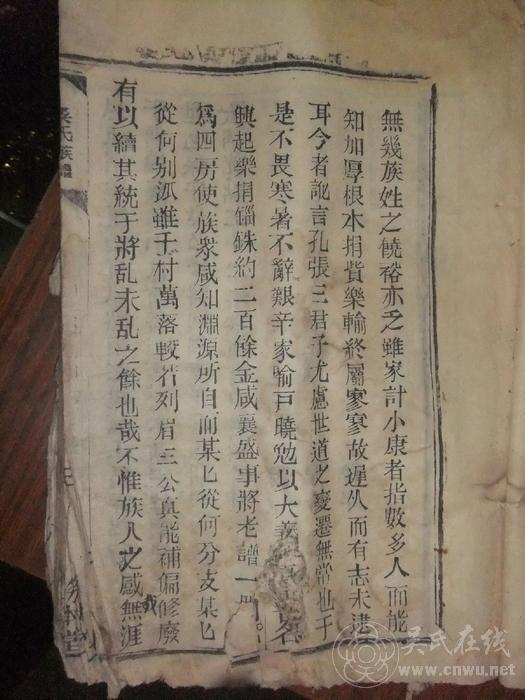 無幾族姓之饒裕亦乏雖家計小康者指數多人而能
知加厚根本捐貲樂輸終屬寥寥故遲久而有志未逮
耳今者訛言孔張三君子尤慮世道之變遷無常也于
是不畏寒暑不辭艱辛家喻戶曉勉以大義
興起樂捐錙銖約二百餘金咸襄盛事將老譜一
為四房使族眾咸知淵源所自而某匕從何分支某匕
從何別派雖千村萬落較若列眉三公真能補偏修廢
有以續其統于將乱未乱之餘也哉不惟族人之感無涯
吳氏族譜
堂
吳氏在线
www.cnwu.net